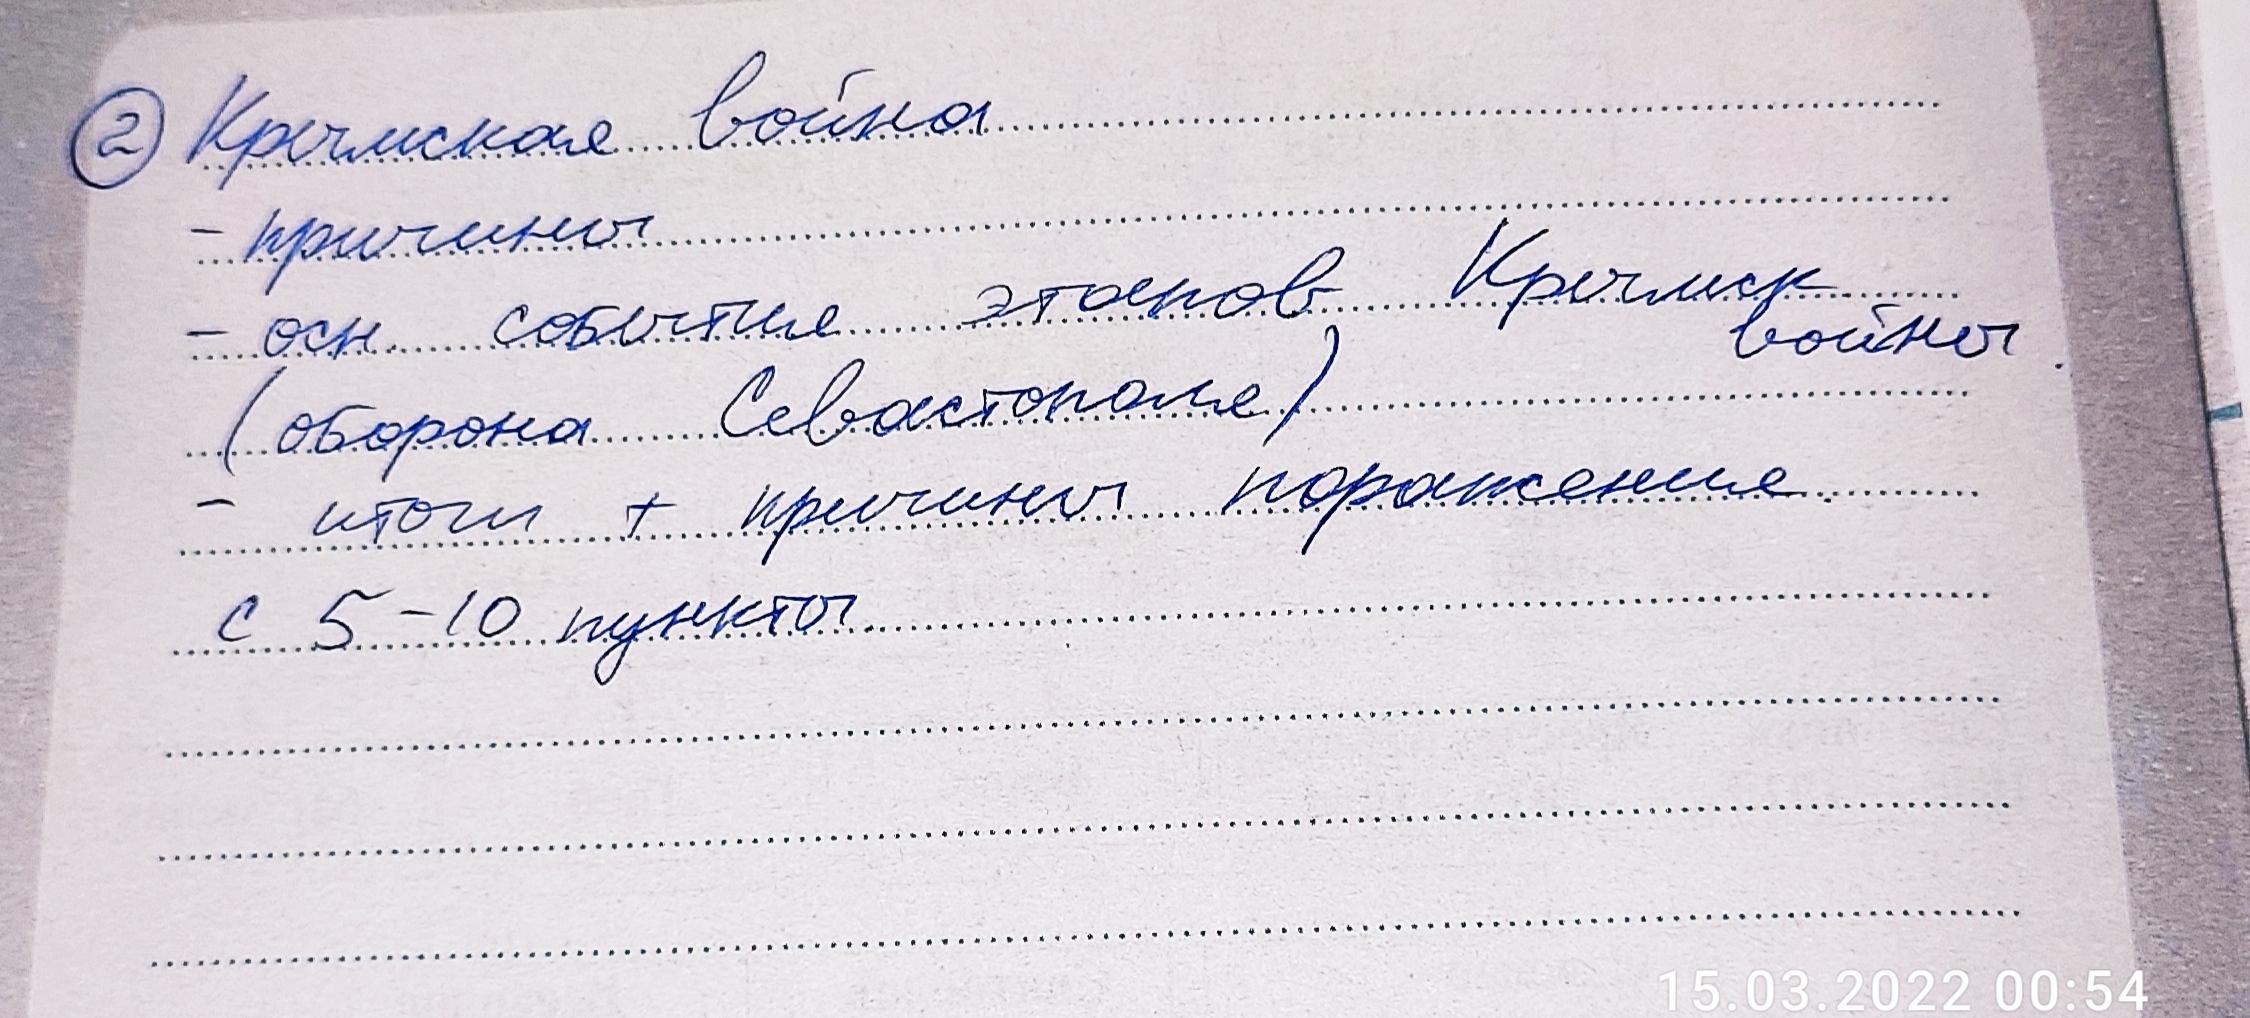 2 Крымская война
- причины
- осн. события этапов Крымск
войны
(оборона Севастополя)
- итоги + причины поражения.
с 5-10 пункты.
15.03.2022 00:54